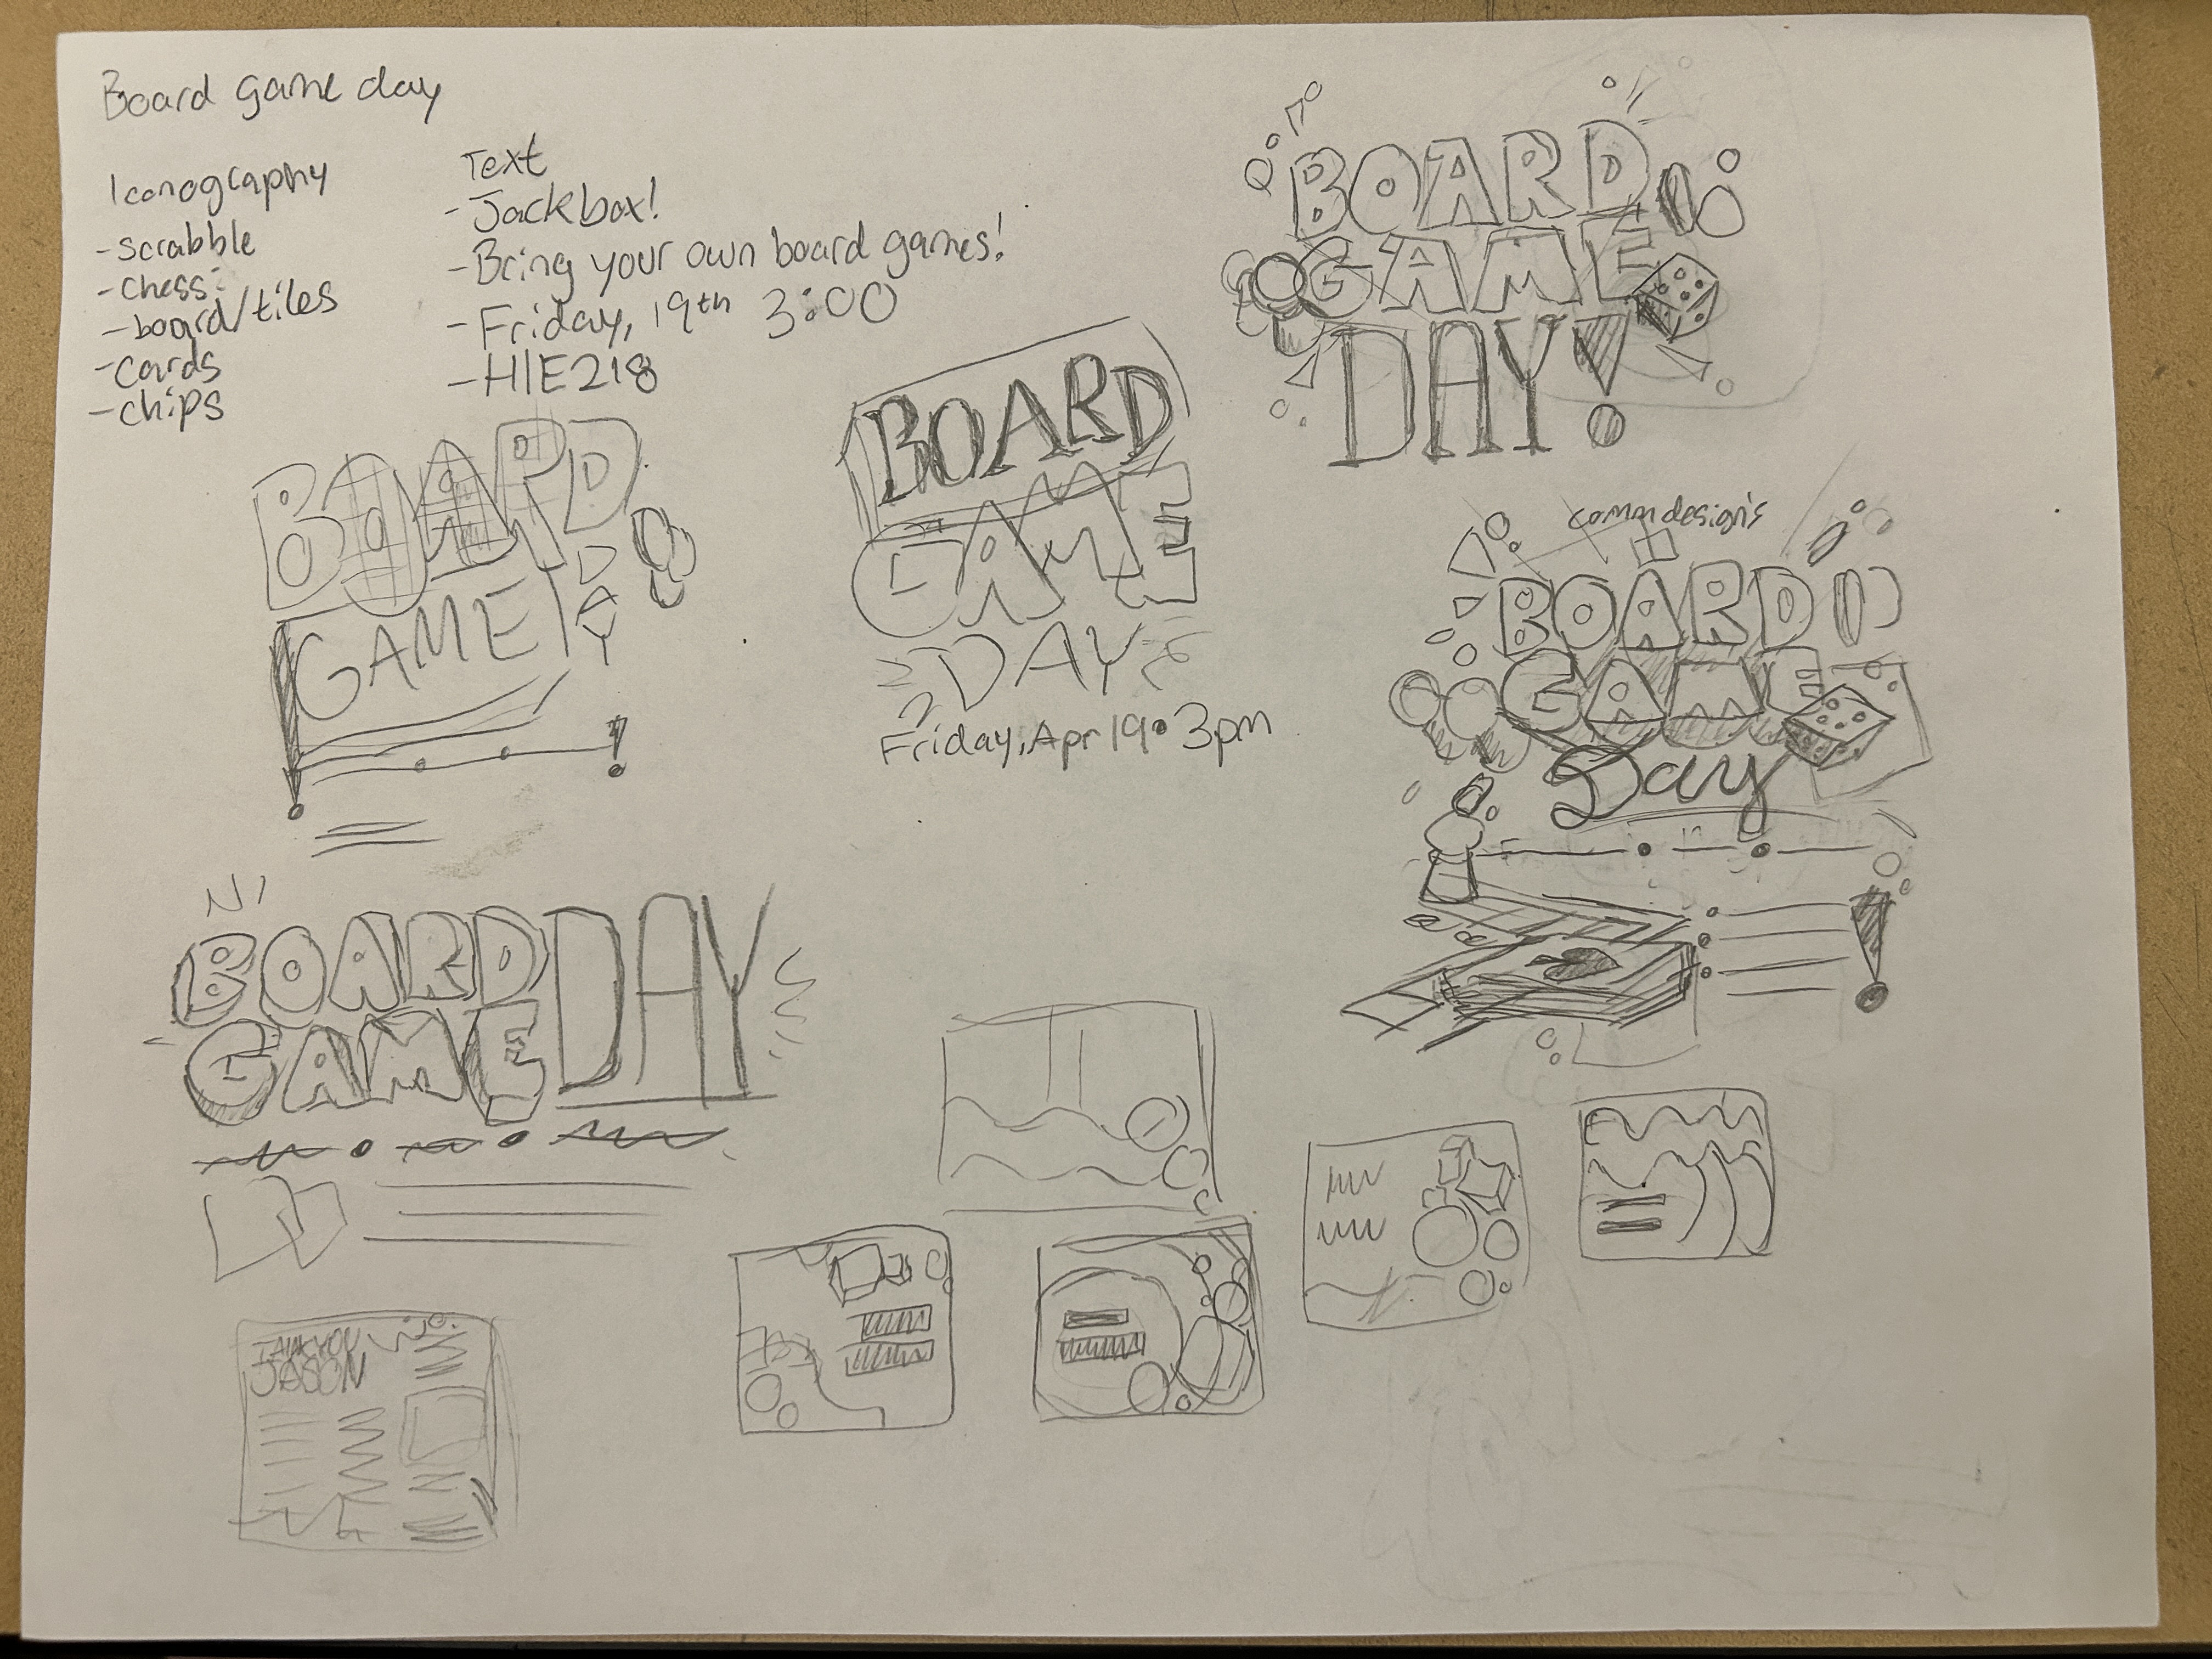 Board game day
Iconography
- scrabble
- chess
- board/tiles
- cards
- chips
Text
- Jackbox!
- Bring your own board games!
- Friday, 19th 3:00
- H/E218
BOARD
GAME
DAY!
BOARD
GAME
DAY
!
BOARD
GAME
DAY
Friday, Apr 19 • 3pm
comm design's
BOARD
GAME
Day
!
BOARD
GAME
DAY
JASON